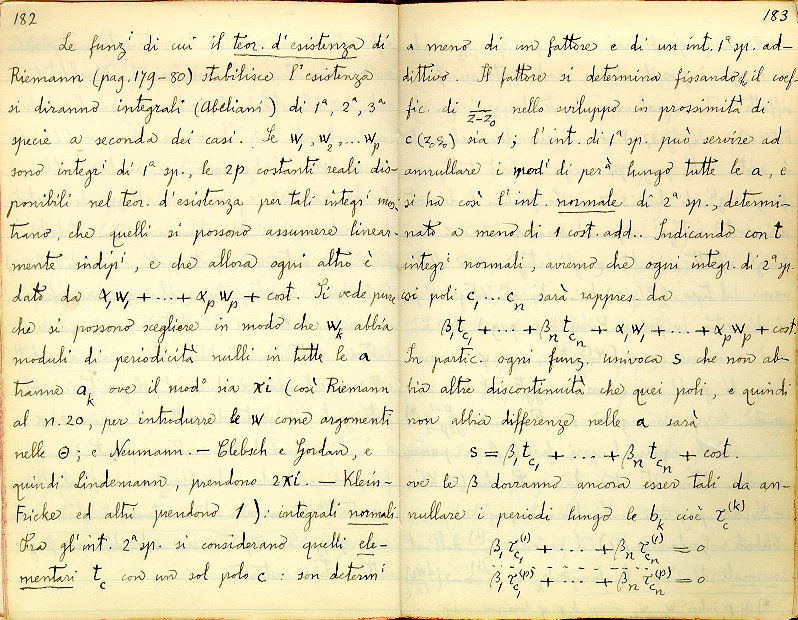 182
Le funz<sup>i</sup> di cui il teor. d'esistenza di
Riemann (pag. 179-80) stabilisce l'esistenza
si diranno integrali (Abeliani) di 1ª, 2ª, 3ª
specie a seconda dei casi. Se w₁, w₂, ... wₚ
sono integrⁱ di 1ª sp., le 2p costanti reali dis-
ponibili nel teor. d'esistenza per tali integrⁱ mo-
trano, che quelli si possono assumere linear-
mente indipⁱ, e che allora ogni altro è
dato da α₁w₁ + ... + αₚwₚ + cost. Si vede pure
che si possono scegliere in modo che wₖ abbia
moduli di periodicità nulli in tutte le a
tranne aₖ ove il mod° sia πi (così Riemann
al n. 20, per introdurre le w come argomenti
nelle Θ; e Neumann. — Clebsch e Gordan, e
quindi Lindemann, prendono 2πi. — Klein-
Fricke ed altri prendono 1): integrali normali
Tra gl'int. 2ª sp. si considerano quelli ele-
mentari t_c con un sol polo c: son determⁱ
183
a meno di un fattore e di un int. 1ª sp. ad-
dittivo. Il fattore si determina fissando il coef-
fic. di 1/(z-z₀) nello sviluppo in prossimità di
c (z₀s₀) sia 1; l'int. di 1ª sp. può servire ad
annullare i modⁱ di per<sup>à</sup> lungo tutte le a, e
si ha così l'int. normale di 2ª sp., determi-
nato a meno di 1 cost. add.. Indicando con t
integrⁱ normali, avremo che ogni integr. di 2ª sp.
coi poli c₁ ... cₙ sarà rappres. da
β₁t_c₁ + ... + βₙt_cₙ + α₁w₁ + ... + αₚwₚ + cost.
In partic. ogni funz. univoca s che non ab-
bia altre discontinuità che quei poli, e quindi
non abbia differenze nelle a sarà
s = β₁t_c₁ + ... + βₙt_cₙ + cost.
ove le β dovranno ancora esser tali da an-
nullare i periodi lungo le bₖ cioè τ_c^(k)
β₁τ_c₁^(1) + ... + βₙτ_cₙ^(1) = 0
β₁τ_c₁^(p) + ... + βₙτ_cₙ^(p) = 0